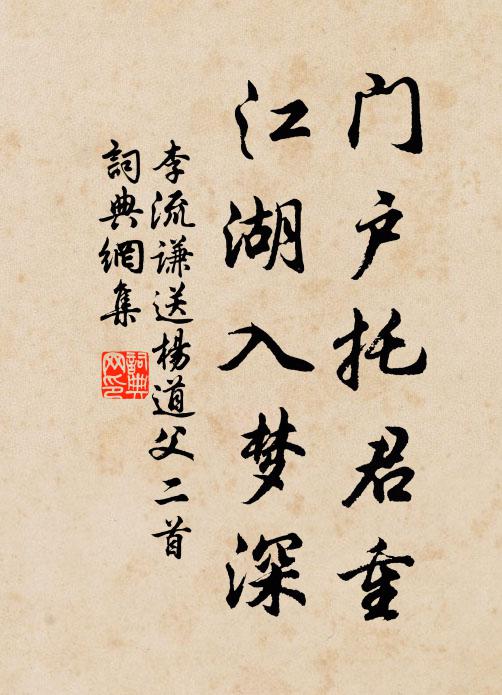 门户托君重
江湖入梦深
李流谦送楊道父二首
詞典網集
詞典網印